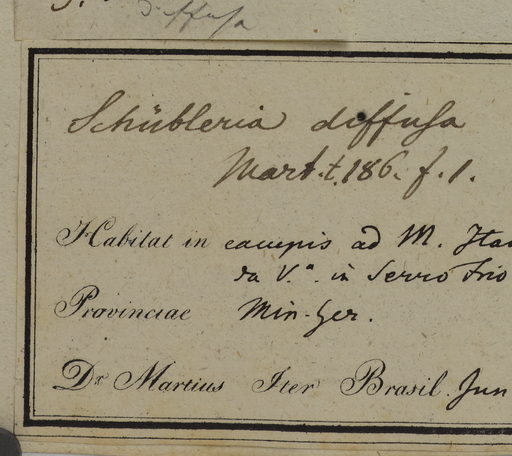 diffusa
Schübleria diffusa
Mart. t. 186. f. 1.
Habitat in campis ad M. Ita
da V.ª in Serro Frio
Provinciae Min-Ger.
Dr. Martius Iter Brasil. Jun